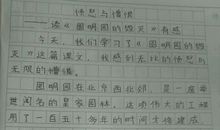 愤怒与憎恨
——读《圆明园的毁灭》有感
今天，我们学习了《圆明园的毁
灭》这篇课文，我感到无比的愤怒与
无限的憎恨。
圆明园在北京西北郊，是一座举
世闻名的皇家园林。这项伟大的工程
用了一百五十多年的时间才修建成